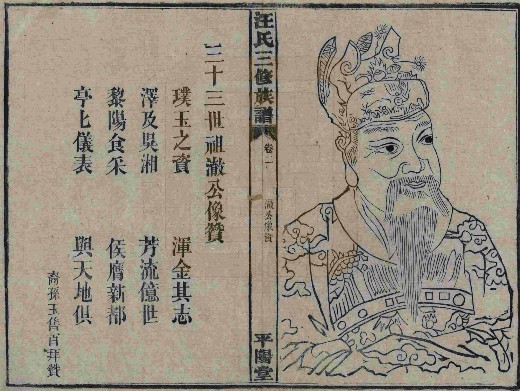 汪氏三修族譜
卷二
澈公像贊
平陽堂
三十三世祖澈公像贊
璞玉之資 渾金其志
澤及吳湘 芳流億世
黎陽食采 侯膺新都
亭上儀表 與天地俱
裔孫玉魯百拜贊